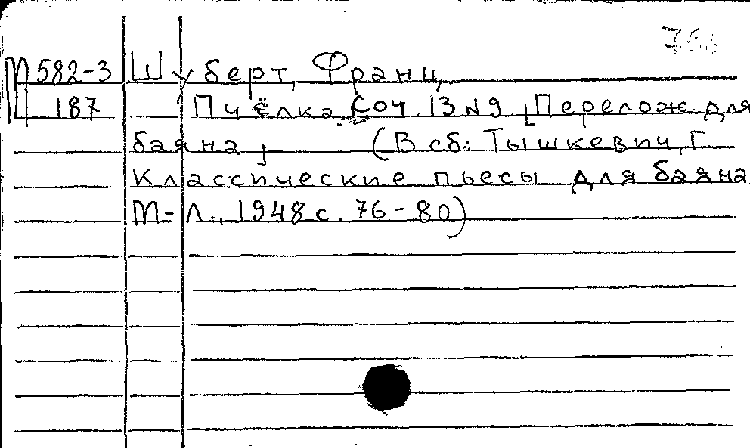 М582-3 Шуберт, Франц
Ш 187 Пчёлка. Соч. 13 №9 [Перелож. для
баяна] (В сб: Тышкевич, Г.
Классические пьесы для баяна
М-Л., 1948 с. 76-80)